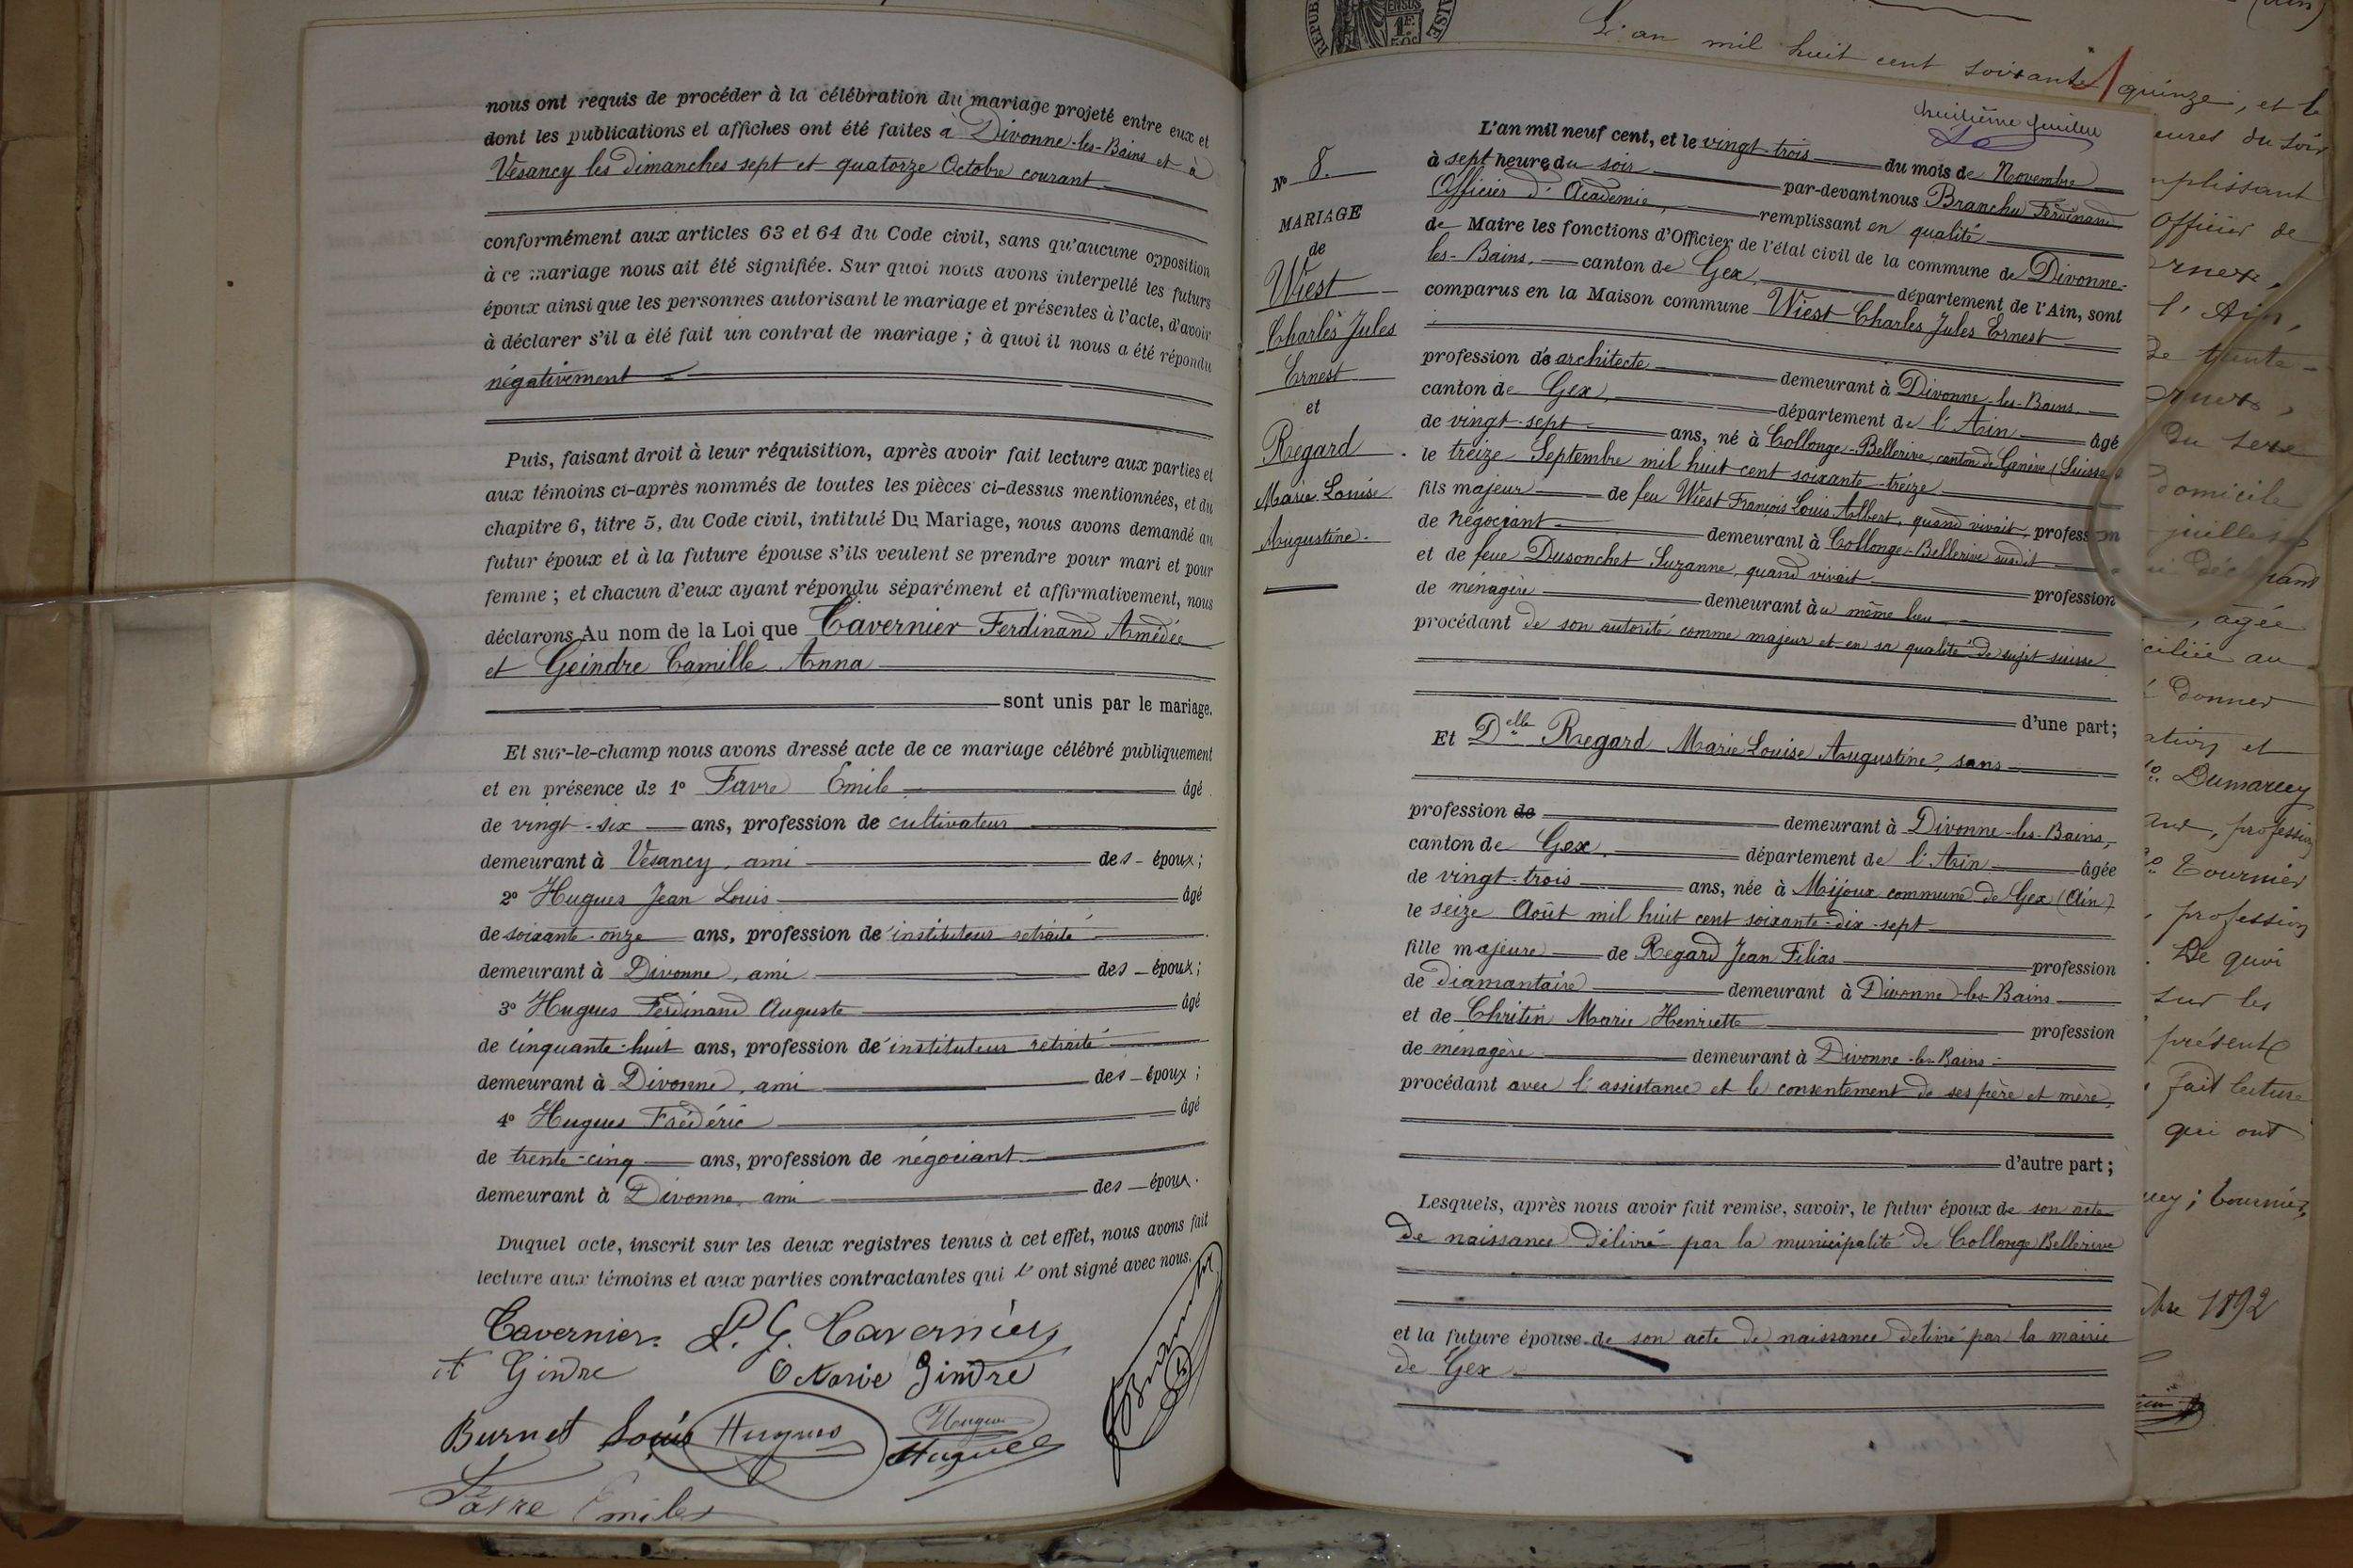 nous ont requis de procéder à la célébration du mariage projeté entre eux et
dont les publications et affiches ont été faites à Divonne-les-Bains et à
Vesancy les dimanches sept et quatorze Octobre courant
conformément aux articles 63 et 64 du Code civil, sans qu'aucune opposition
à ce mariage nous ait été signifiée. Sur quoi nous avons interpellé les futurs
époux ainsi que les personnes autorisant le mariage et présentes à l'acte, d'avoir
à déclarer s'il a été fait un contrat de mariage ; à quoi il nous a été répondu
négativement
Puis, faisant droit à leur réquisition, après avoir fait lecture aux parties et
aux témoins ci-après nommés de toutes les pièces ci-dessus mentionnées, et du
chapitre 6, titre 5, du Code civil, intitulé Du Mariage, nous avons demandé au
futur époux et à la future épouse s'ils veulent se prendre pour mari et pour
femme ; et chacun d'eux ayant répondu séparément et affirmativement, nous
déclarons Au nom de la Loi que Tavernier Ferdinand Amédée
et Geindre Camille Anna
sont unis par le mariage.
Et sur-le-champ nous avons dressé acte de ce mariage célébré publiquement
et en présence de 1° Favre Emile âgé
de vingt-six ans, profession de cultivateur
demeurant à Vesancy, ami des époux ;
2° Hugues Jean Louis âgé
de soixante-onze ans, profession de instituteur retraité
demeurant à Divonne, ami des époux ;
3° Hugues Ferdinand Auguste âgé
de cinquante-huit ans, profession de instituteur retraité
demeurant à Divonne, ami des époux ;
4° Hugues Frédéric âgé
de trente-cinq ans, profession de négociant
demeurant à Divonne, ami des époux.
Duquel acte, inscrit sur les deux registres tenus à cet effet, nous avons fait
lecture aux témoins et aux parties contractantes qui l'ont signé avec nous.
Tavernier. L. G. Tavernier
A Gindre Octavie Gindre
Burnet Louis Hugues Hugues
Hugues
Favre Emile
L'an mil huit cent soixante quinze, et le
huitième feuillet
L'an mil neuf cent, et le vingt-trois du mois de Novembre
à sept heures du soir par-devant nous Branchu Ferdinand
Officier d'Académie, remplissant en qualité
de Maire les fonctions d'Officier de l'état civil de la commune de Divonne-
les-Bains, canton de Gex, département de l'Ain, sont
comparus en la Maison commune Wiest Charles Jules Ernest
profession de architecte demeurant à Divonne-les-Bains
canton de Gex, département de l'Ain âgé
de vingt-sept ans, né à Collonge-Bellerive, canton de Genève (Suisse)
le treize Septembre mil huit cent soixante-treize
fils majeur de feu Wiest François Louis Albert, quand vivait, profession
de négociant demeurant à Collonge-Bellerive susdit
et de feue Dusonchet Suzanne, quand vivait profession
de ménagère demeurant au même lieu
procédant de son autorité comme majeur et en sa qualité de sujet suisse
d'une part ;
Et Delle Regard Marie Louise Augustine, sans
profession de demeurant à Divonne-les-Bains,
canton de Gex. département de l'Ain âgée
de vingt-trois ans, née à Mijoux commune de Gex (Ain)
le seize Août mil huit cent soixante-dix-sept
fille majeure de Regard Jean Félias profession
de diamantaire demeurant à Divonne-les-Bains
et de Chritin Marie Henriette profession
de ménagère demeurant à Divonne-les-Bains
procédant avec l'assistance et le consentement de ses père et mère,
d'autre part ;
Lesquels, après nous avoir fait remise, savoir, le futur époux de son acte
de naissance délivré par la municipalité de Collonge Bellerive
et la future épouse de son acte de naissance délivré par la mairie
de Gex
N° 8.
MARIAGE
de
Wiest
Charles Jules
Ernest
et
Regard
Marie Louise
Augustine.
eures du soir
Officier de
l'Ain,
du sexe
domicile
, agée
donner
Dumarcey
, profession
Tournier
, profession
De quoi
sur les
présent
fait lecture
qui ont
Tournier,
1892